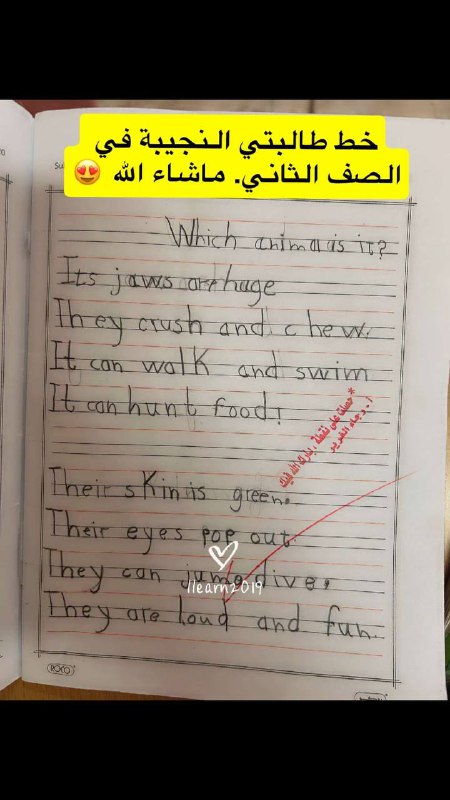 خط طالبتي النجيبة في
الصف الثاني. ماشاء الله 😍
Which animal is it?
Its jaws are huge
They crush and chew.
It can walk and swim
It can hunt food!
* حصلت على نقطة، بارك الله فيك
أ. رجاء الغرير
Their skin is green.
Their eyes pop out.
They can jump dive,
1learn2019
They are loud and fun.
ROCO